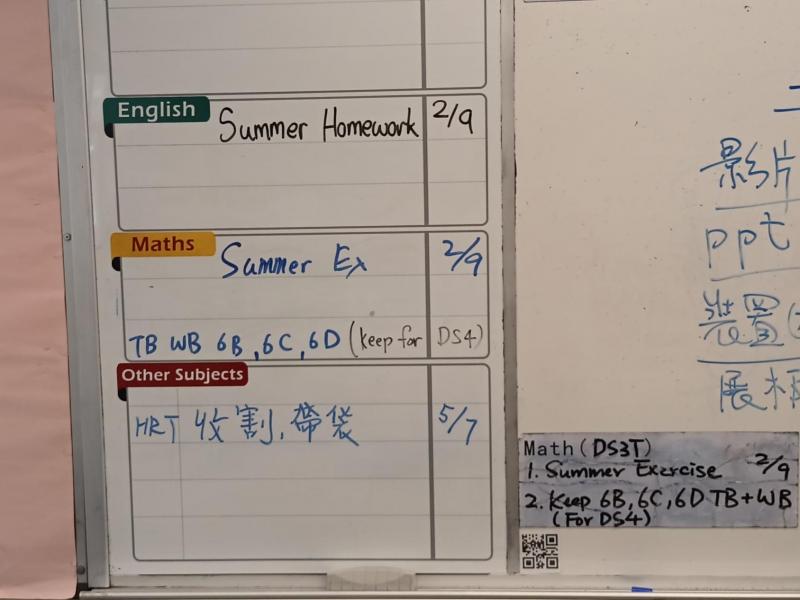 English
Summer Homework 2/9
Maths
Summer Ex 2/9
TB WB 6B, 6C, 6D (keep for DS4)
Other Subjects
HRT 收割, 帶袋 5/7
影片
ppt
裝置
展板
Math (DS3T)
1. Summer Exercise 2/9
2. Keep 6B, 6C, 6D TB+WB
(For DS4)